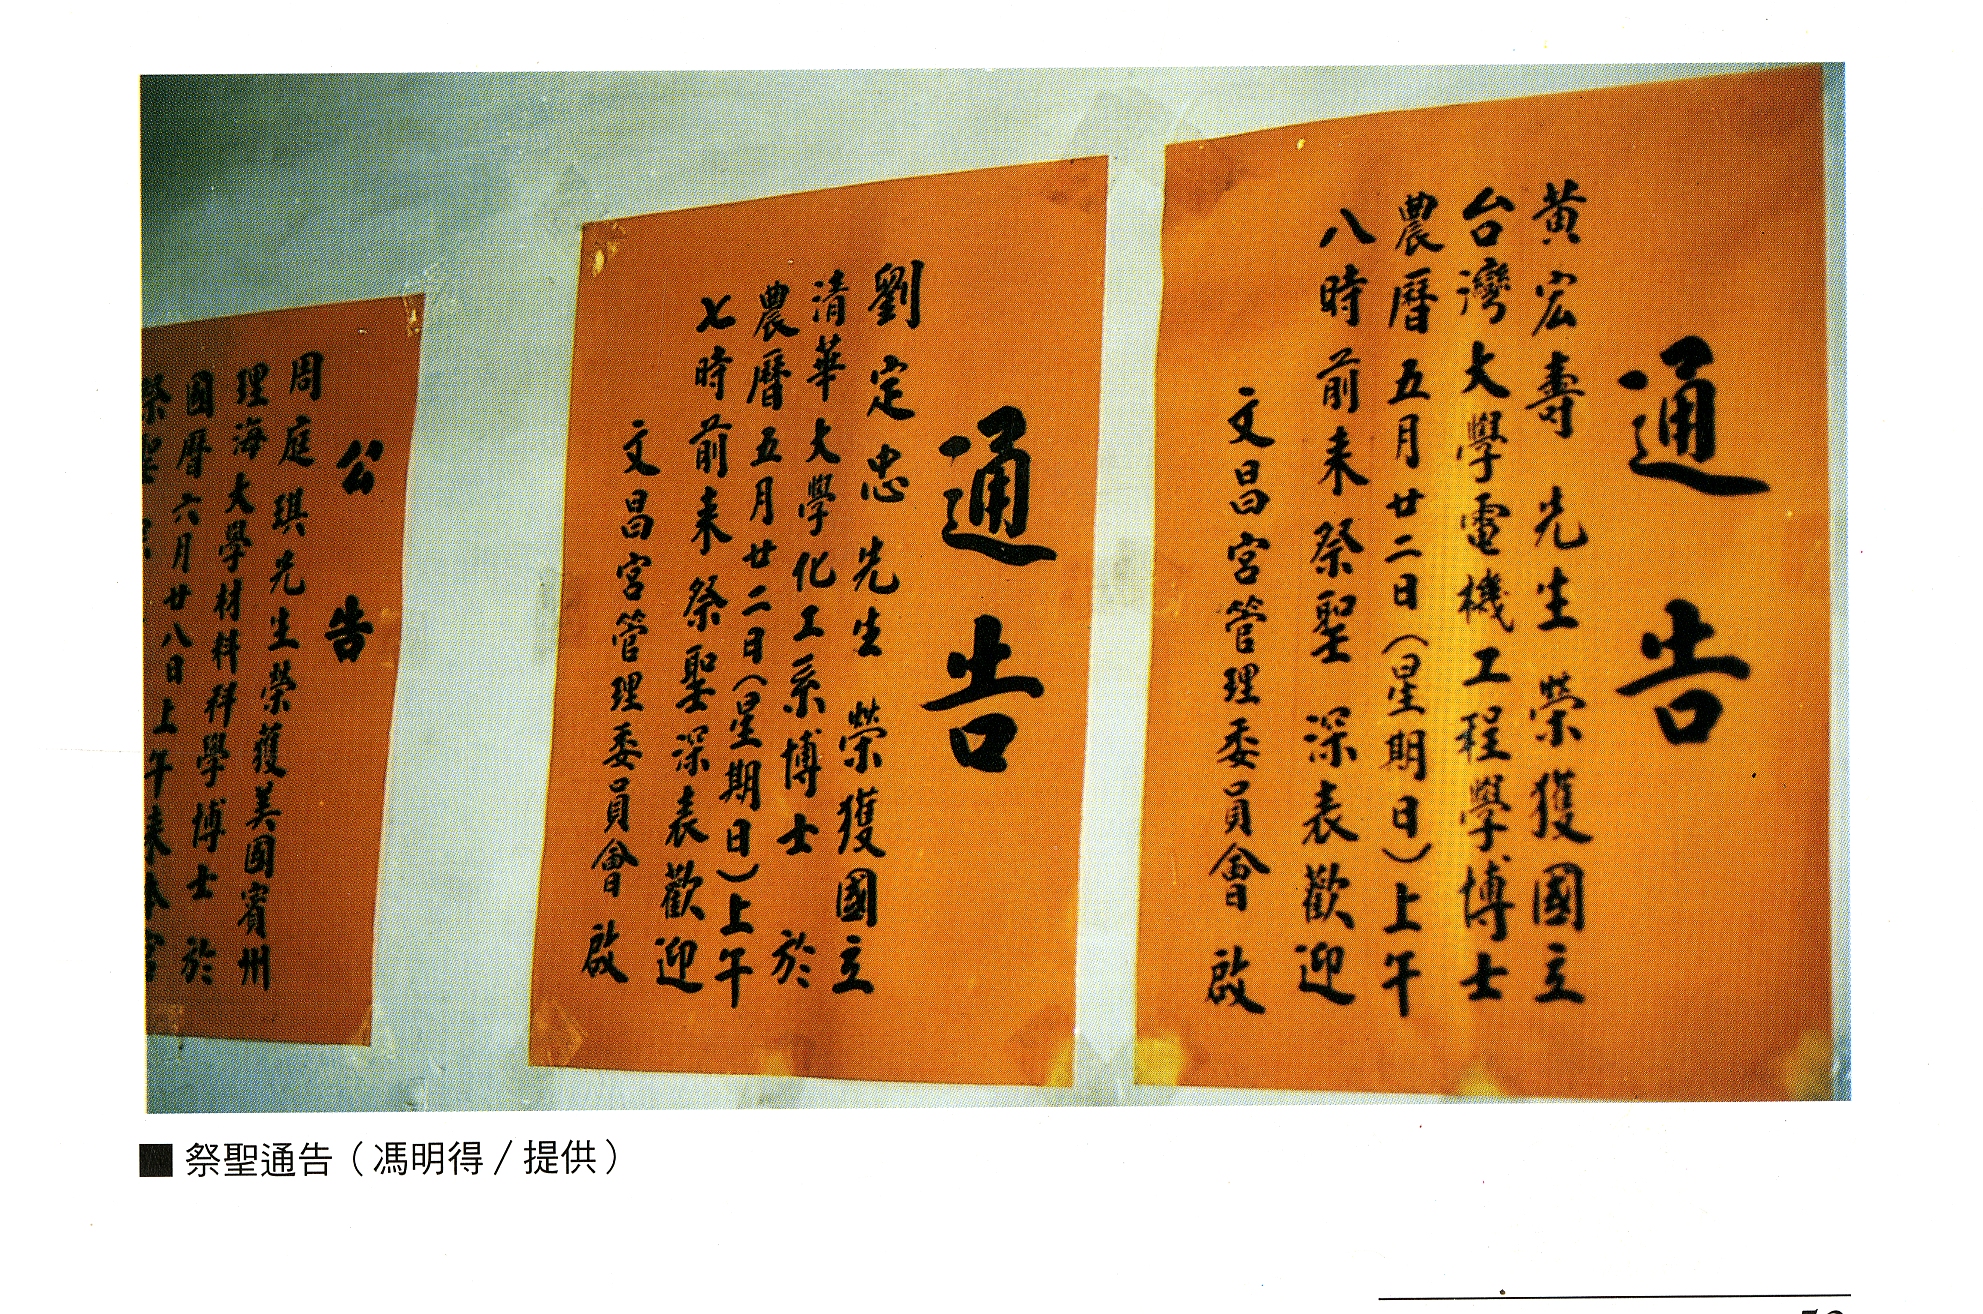 通告
黃宏壽先生榮獲國立
台灣大學電機工程學博士
農曆五月廿二日(星期日)上午
八時前來祭聖深表歡迎
文昌宮管理委員會啟
通告
劉定忠先生榮獲國立
清華大學化工系博士於
農曆五月廿二日(星期日)上午
七時前來祭聖深表歡迎
文昌宮管理委員會啟
公告
周庭琪先生榮獲美國賓州
理海大學材料科學博士於
國曆六月廿八日上午來本宮
祭聖
■祭聖通告(馮明得/提供)